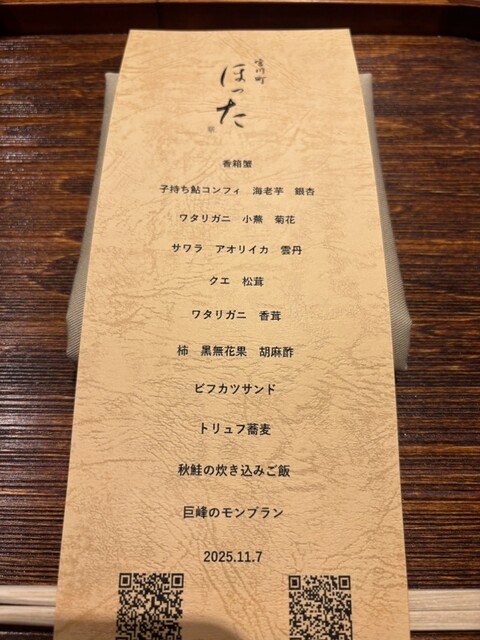 ほった
香箱蟹
子持ち鮎コンフィ　海老芋　銀杏
ワタリガニ　小蕪　菊花
サワラ　アオリイカ　雲丹
クエ　松茸
ワタリガニ　香茸
柿　黒無花果　胡麻酢
ビフカツサンド
トリュフ蕎麦
秋鮭の炊き込みご飯
巨峰のモンブラン
2025.11.7